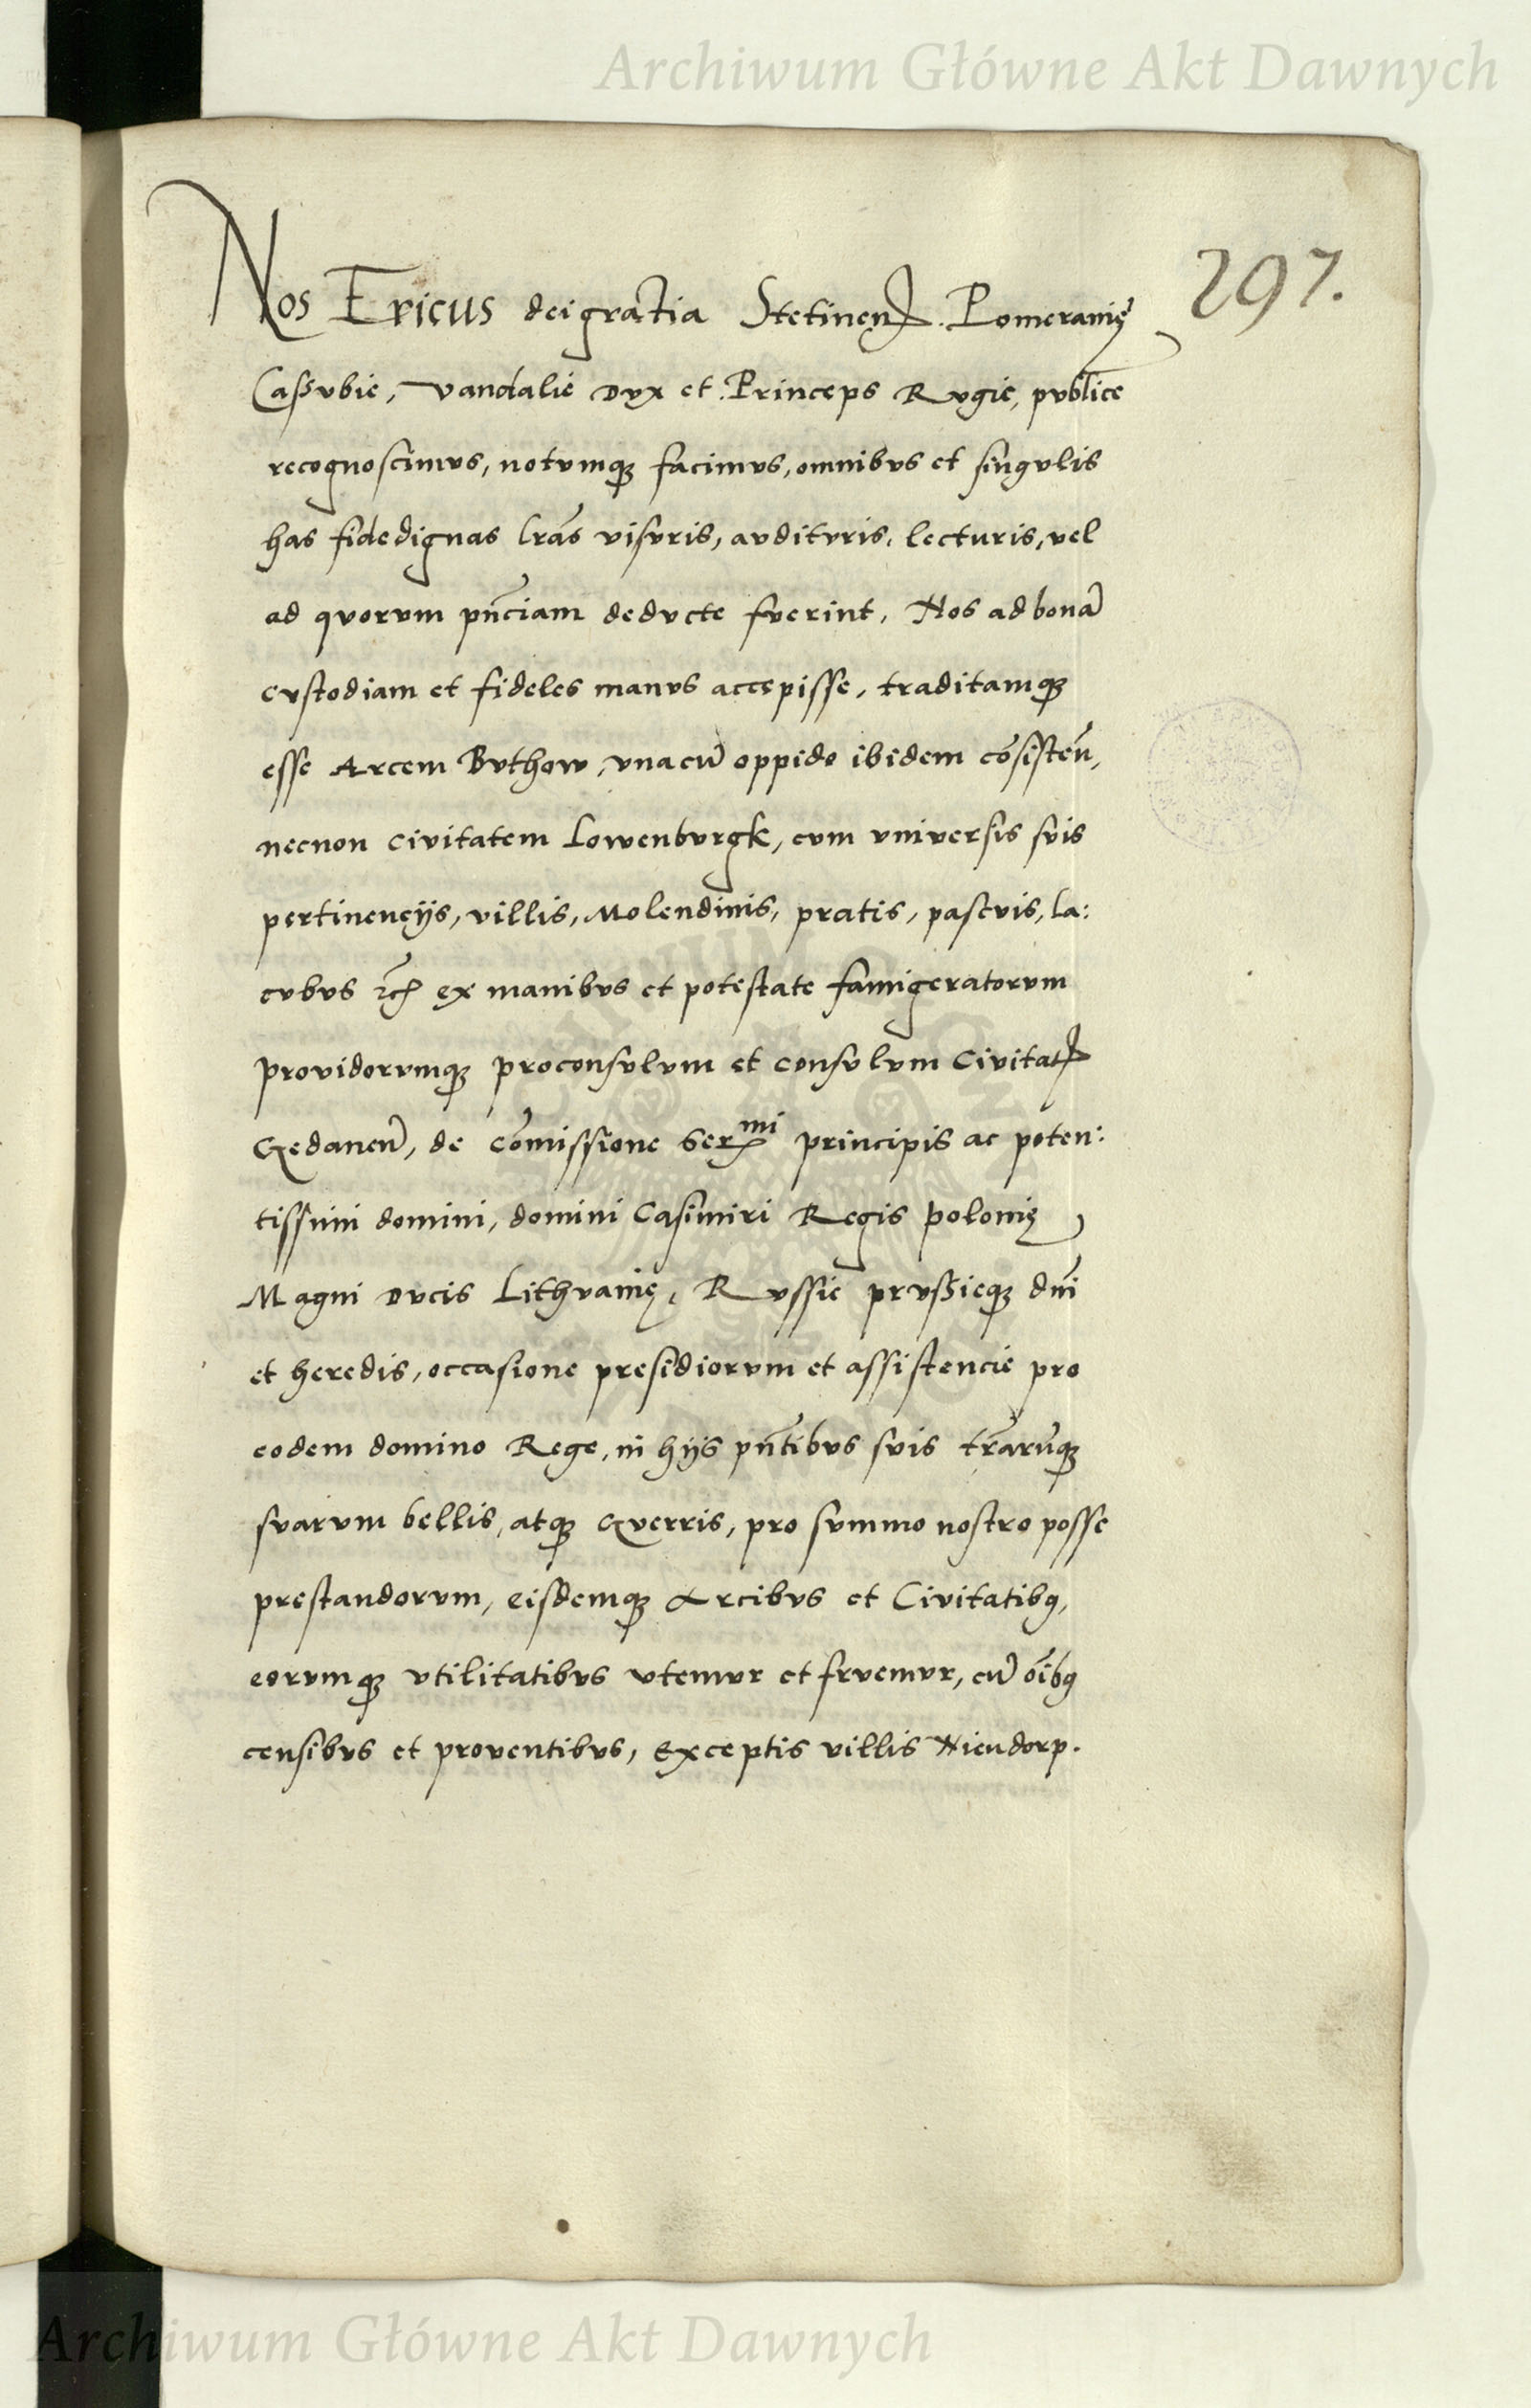 Archiwum Główne Akt Dawnych
297.
Nos Ericus dei gratia Stetinen̄. Pomeranię
Caſſvbie, vandalie Dvx et Princeps Rvgie, pvblice
recognoscimvs, notvmqꝫ facimvs, omnibvs et singvlis
has fidedignas lr̄as visvris, avditvris, lecturis, vel
ad qvorvm pn̄ciam dedvcte fverint, Nos ad bonā
cvstodiam et fideles manvs accepisse, traditamqꝫ
esse Arcem Bvthow, vna cū oppido ibidem cōsisten̄,
necnon civitatem Lowenbvrgk, cvm vniversis svis
pertinencijs, villis, Molendinis, pratis, pascvis, la:
cvbvs ꝛc̄ ex manibvs et potestate famigeratorvm
providorvmqꝫ proconsvlvm et consvlvm Civitat̄
Gedanen̄, de cōmissione Serᵐⁱ principis ac poten:
tissimi domini, domini Casimiri Regis polonię
Magni Dvcis Lithvanię, Rvssie prvssieqꝫ dn̄i
et heredis, occasione presidiorvm et assistencie pro
eodem domino Rege, in hijs pn̄tibvs svis tr̄arūqꝫ
svarvm bellis, atqꝫ Gverris, pro svmmo nostro posse
prestandorvm, eisdemqꝫ Arcibvs et Civitatibꝯ,
eorvmqꝫ vtilitatibvs vtemvr et frvemvr, cū oībꝯ
censibvs et proventibvs, exceptis villis Niendorp.
Archiwum Główne Akt Dawnych